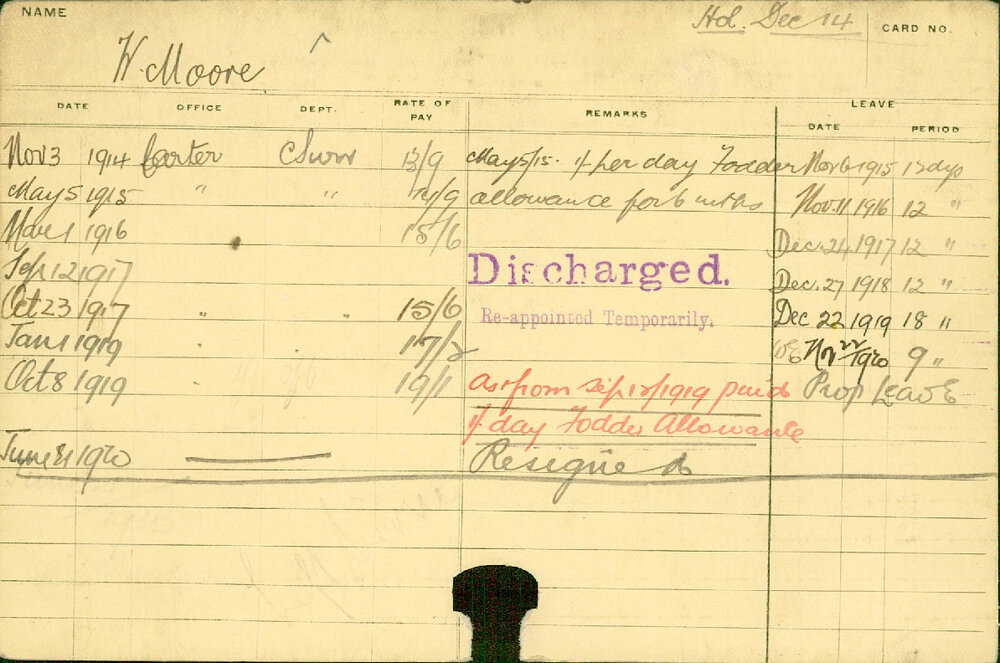 NAME
Hd. Dec 14
CARD NO.
W. Moore
DATE OFFICE DEPT. RATE OF PAY REMARKS LEAVE
DATE PERIOD
Nov 3 1914 Carter 13/9 May 5/15. 1/ per day Fodder Nov 6 1915 12 days
May 5 1915 " " 14/9 allowance for 6 mths Nov. 11 1916 12 "
Mar 1 1916 15/6 Dec. 24 1917 12 "
Sep 12 1917 Discharged. Dec. 27 1918 12 "
Oct 23 1917 " " 15/6 Re-appointed Temporarily. Dec 22 1919 18 "
Jan 1 1919 " " 17/2 Nov 22nd 1920 9 "
Oct 8 1919 " 19/1 As from Sep 12/1919 paid Prop Leave
1/ day Fodder Allowance
June 1920 Resigned